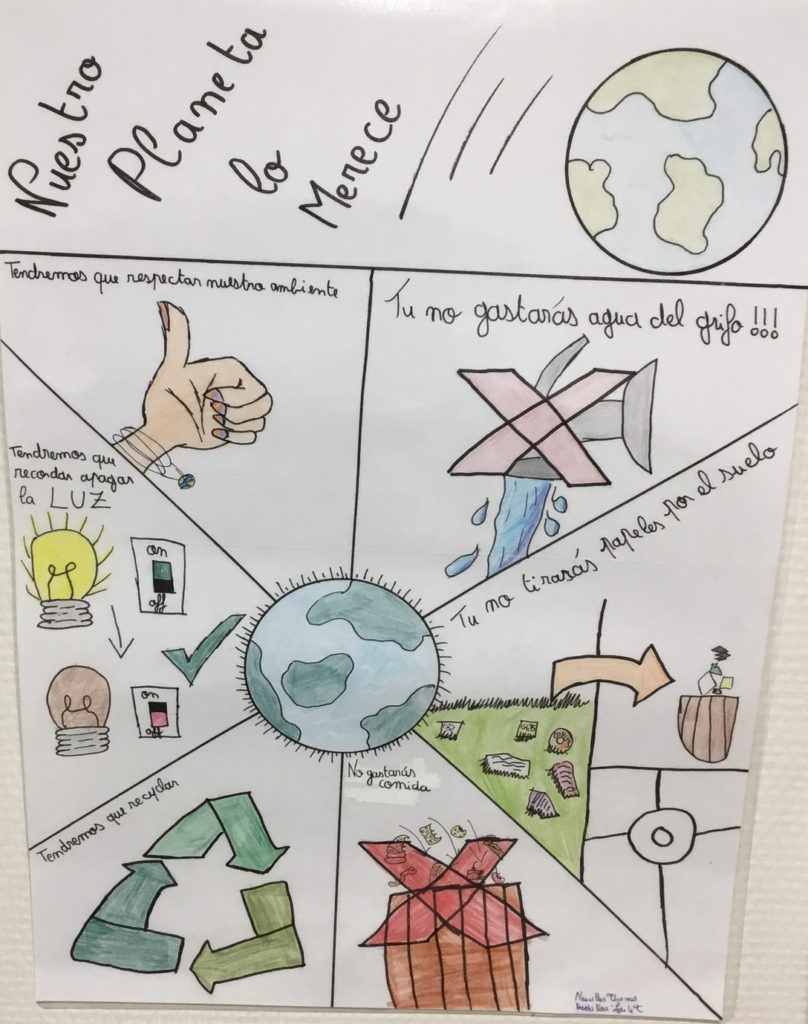 Nuestro
Planeta
lo
Merece
Tendremos que respectar nuestro ambiente
Tu no gastarás agua del grifo !!!
Tendremos que
recordar apagar
la LUZ
on
off
on
off
Tu no tirarás papeles por el suelo
Tendremos que recyclar
No gastarás
comida